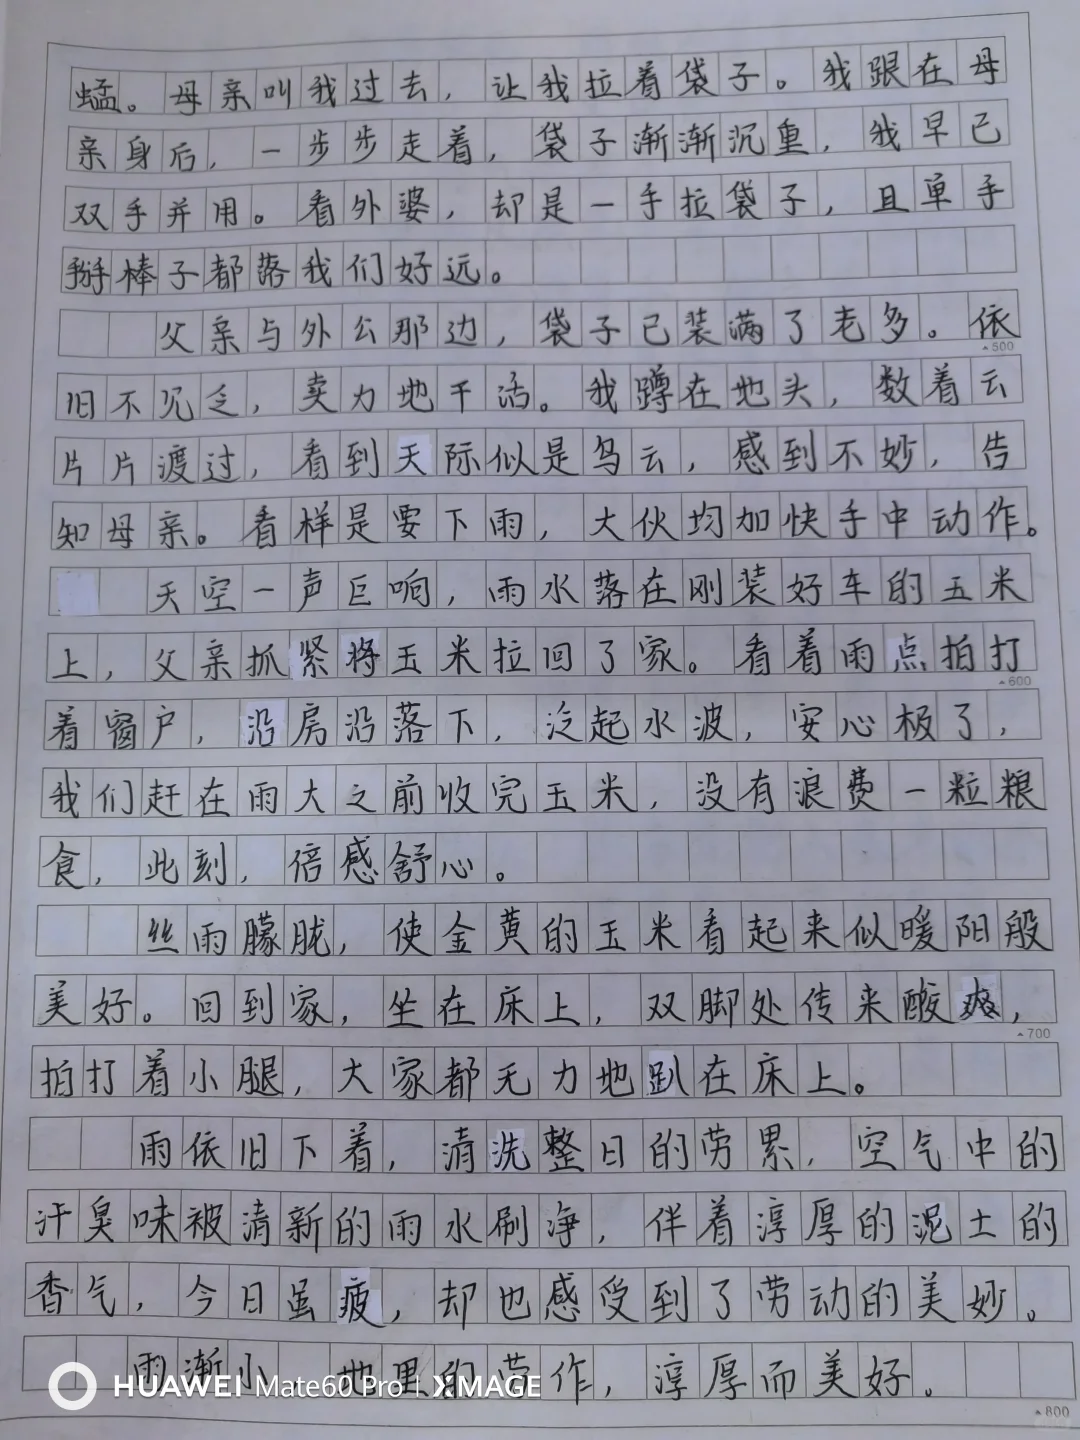 蜢。母亲叫我过去，让我拉着袋子。我跟在母
亲身后，一步步走着，袋子渐渐沉重，我早已
双手并用。看外婆，却是一手拉袋子，且单手
掰棒子都落我们好远。
父亲与外公那边，袋子已装满了老多。依
▲500
旧不见乏，卖力地干活。我蹲在地头，数着云
片片渡过，看到天际似是乌云，感到不妙，告
知母亲。看样是要下雨，大伙均加快手中动作。
天空一声巨响，雨水落在刚装好车的玉米
上，父亲抓紧将玉米拉回了家。看着雨点拍打
▲600
着窗户，沿房沿落下，泛起水波，安心极了，
我们赶在雨大之前收完玉米，没有浪费一粒粮
食，此刻，倍感舒心。
丝雨朦胧，使金黄的玉米看起来似暖阳般
美好。回到家，坐在床上，双脚处传来酸爽，
▲700
拍打着小腿，大家都无力地趴在床上。
雨依旧下着，清洗整日的劳累，空气中的
汗臭味被清新的雨水刷净，伴着淳厚的泥土的
香气，今日虽疲，却也感受到了劳动的美妙。
雨渐小，地里的劳作，淳厚而美好。
▲800
HUAWEI Mate60 Pro | XMAGE